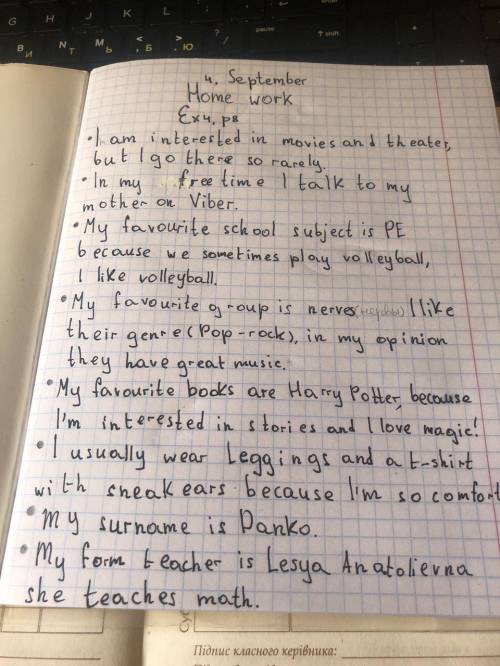 G H J K L
B N M < >
И Т Ь Б Ю
shift
4, September
Home work
Ex4, p8
• I am interested in movies and theater,
but I go there so rarely.
• In my free time I talk to my
mother on Viber.
• My favourite school subject is PE
because we sometimes play volleyball,
I like volleyball.
• My favourite group is nerves(нервы) I like
their genre(Pop-rock), in my opinion
they have great music.
• My favourite books are Harry Potter, because
I'm interested in stories and I love magic!
• I usually wear Leggings and a t-shirt
with sneakears because I'm so comfort
• My surname is Danko.
• My form teacher is Lesya Anatolievna
she teaches math.
Підпис класного керівника: